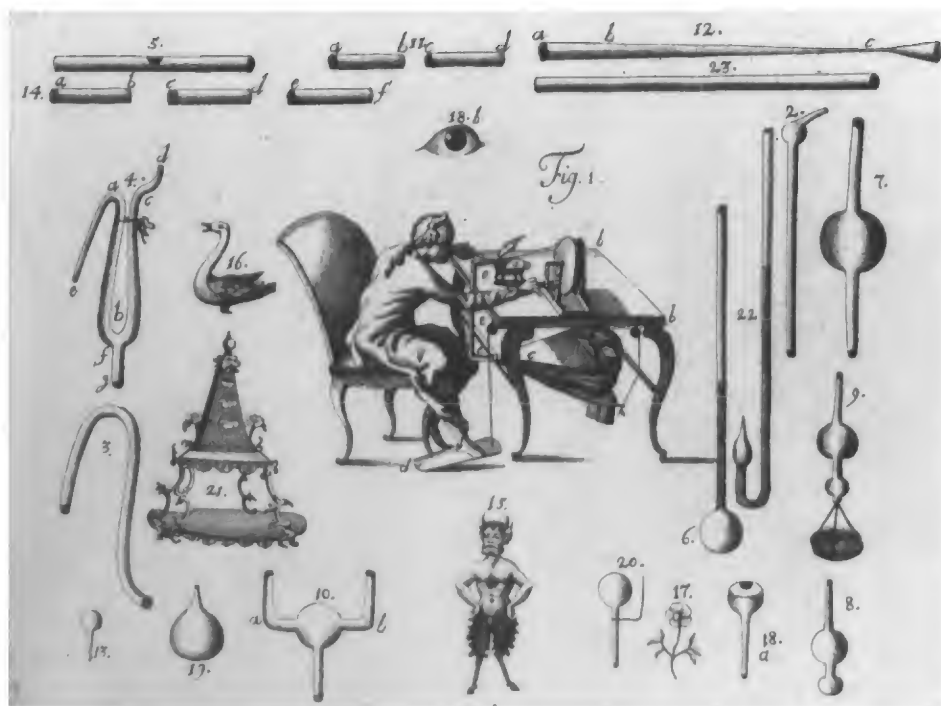 5.
a b 11. c d
a b 12. c
14. a b c d e f
23.
18.b
2.
Fig. 1.
7.
a 4. d
c
e
b
f
g
16.
b
b
22
3.
21.
c
d
9.
6.
15.
13.
19.
a 10. b
20.
17.
18.
a
8.